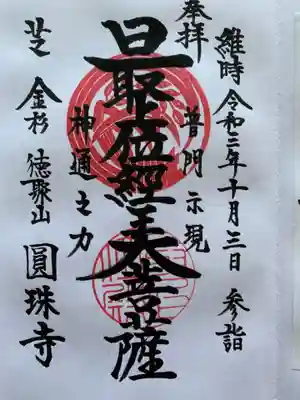 維時 令和二年十月三日 参詣
奉拝
普門示現
最位經王大菩薩
神通之力
芝 金杉 徳聚山 圓珠寺